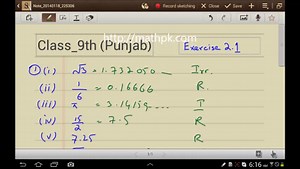 Note_20140118_220306
Record sketching
Actions
http://mathpk.com
Class_9th (Punjab) Exercise 2.1
① (i) √3 = 1.732050 ... Irr.
(ii) 1/6 = 0.16666 R.
(iii) π = 3.14159 ... I
(iv) 15/2 = 7.5 R
(v) 7.25 R
6:16